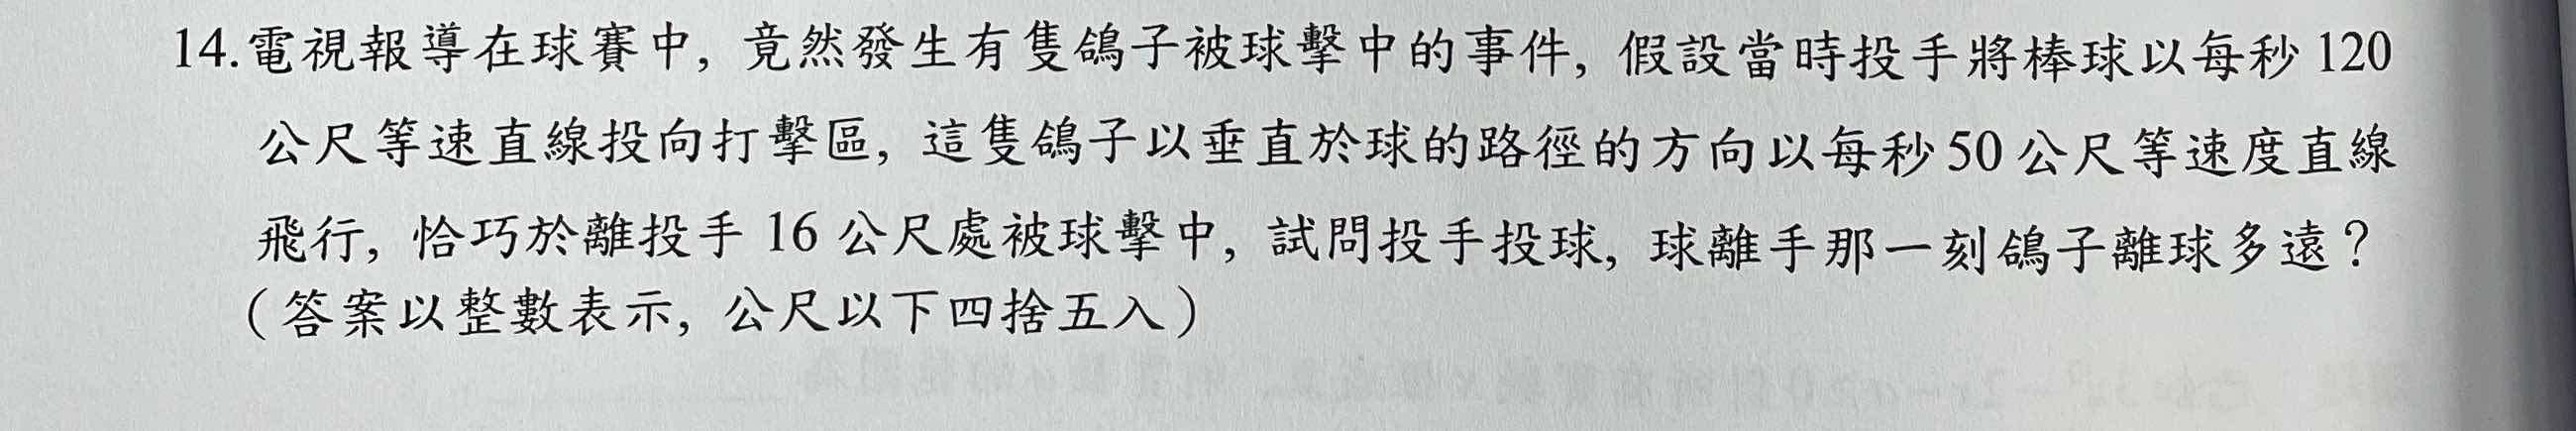 14.電視報導在球賽中, 竟然發生有隻鴿子被球擊中的事件, 假設當時投手將棒球以每秒 120
公尺等速直線投向打擊區, 這隻鴿子以垂直於球的路徑的方向以每秒 50 公尺等速度直線
飛行, 恰巧於離投手 16 公尺處被球擊中, 試問投手投球, 球離手那一刻鴿子離球多遠？
（答案以整數表示, 公尺以下四捨五入）